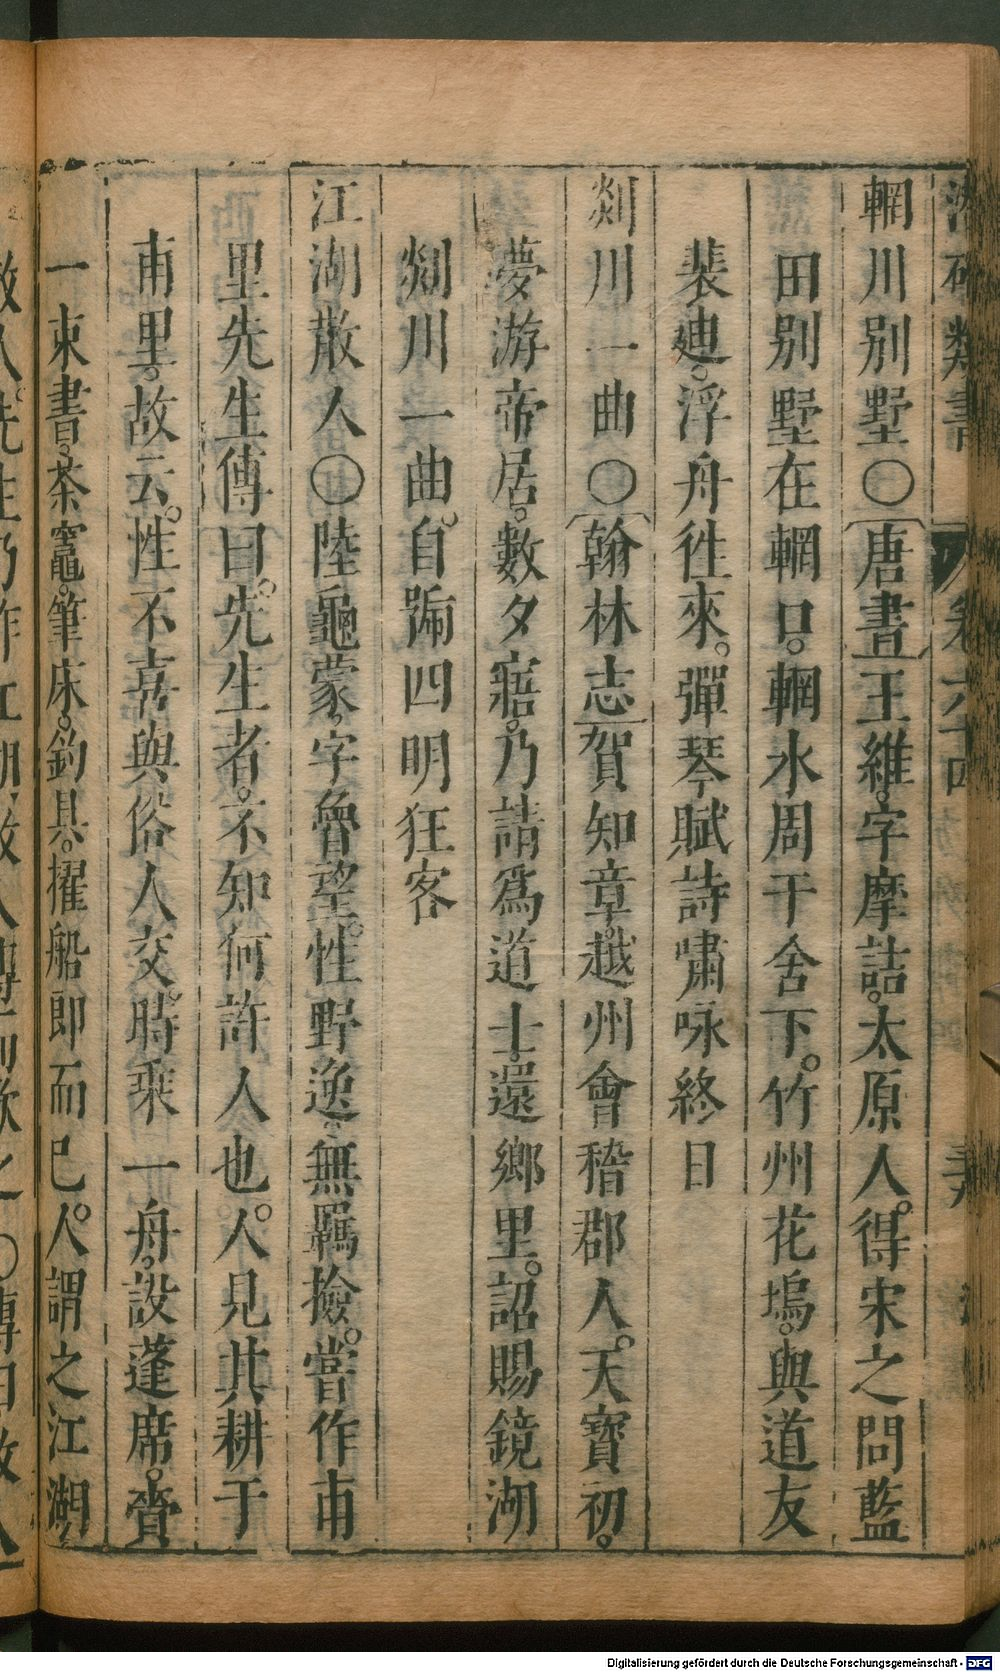 類書 卷六十四
輞川别墅○唐書王維。字摩詰。太原人。得宋之問藍
田别墅在輞口。輞水周于舍下。竹州花塢。與道友
裴迪。浮舟徃來。彈琴賦詩嘯咏終日
剡川一曲○翰林志賀知章。越州會稽郡人。天寶初。
夢游帝居。數夕寤。乃請爲道士。還鄉里。詔賜鏡湖
剡川一曲。自號四明狂客
江湖散人○陸龜蒙。字魯望。性野逸。無羈撿。嘗作甫
里先生傳曰。先生者。不知何許人也。人見其耕于
甫里。故云。性不喜與俗人交。時乘一舟。設蓬席。賫
一束書。茶竈。筆床。釣具。擢船郎而已。人謂之江湖
散人。先生乃作江湖散人傳而歌之○傳曰散人
Digitalisierung gefördert durch die Deutsche Forschungsgemeinschaft - DFG